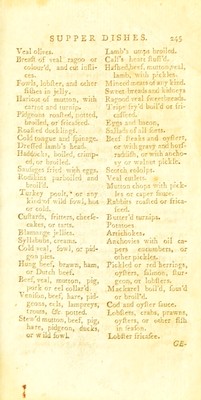 SUPPER DISHES. 245
Veal olives.
Breast of veal ragoo or
colour'd, and cut
ers.
Fowls, lobster, and other
fishes in jelly.
Haricot of mutton, with
carrot and turnip.
Pidgeons roasted, rotted,
broiled, or fricaseed.
Roasted ducklings.
Cold tongue and spinage.
Dressed lamb's head.
Haddocks, boiled, crimp-
ed, or broiled.
Sausages fried with eggs.
Rockfish parboiled and
broil'd.
Turkey poult, or any
kind of wild fowl, hot
or cold.
Custards, fritters, cheese-
cakes, or tarts.
Blamange jellies.
Syllabubs, creams.
Cold veal, fowl, or pid-
geon pies.
Hung beef, brawn, ham,
or Dutch beef.
Beef, veal, mutton, pig,
pork or eel collar'd.
Venison, beef, hare, pid-
geons, eels, lampreys,
trouts, &c potted.
Stew'd mutton, beef, pig,
hare, pidgeon, ducks,
or wild fowl.
Lamb's broiled.
Calf's heart stuff'd.
Hashed beef, mutton, veal,
lamb, with pickles.
Minced meats of any kind.
Sweet breads and kidneys
Ragood veal sweetbreads.
Tripe fry'd boil'd or fri-
casseed.
Eggs and bacon.
Sallads of all sorts.
Beef steaks and oysters,
or with gravy and horse-
radish, or with ancho-
vy or walnut pickle.
Scotch collops.
Veal cutlets.
Mutton chops with pick-
les or caper sauce.
Rabbits roasted or frica-
seed.
Butter'd turnips.
Potatoes
Artichokes.
Anchovies with oil ca-
pers cucumbers, or
other pickles.
Pickled or red herrings,
oysters, salmon, stur-
geon, or lobsters.
Mackarel boil'd, sous'd
or broil'd.
Cod and oyster sauce.
Lobsters, crabs, prawns,
oysters, or other fish
in season.
Lobster fricasee.
GE-